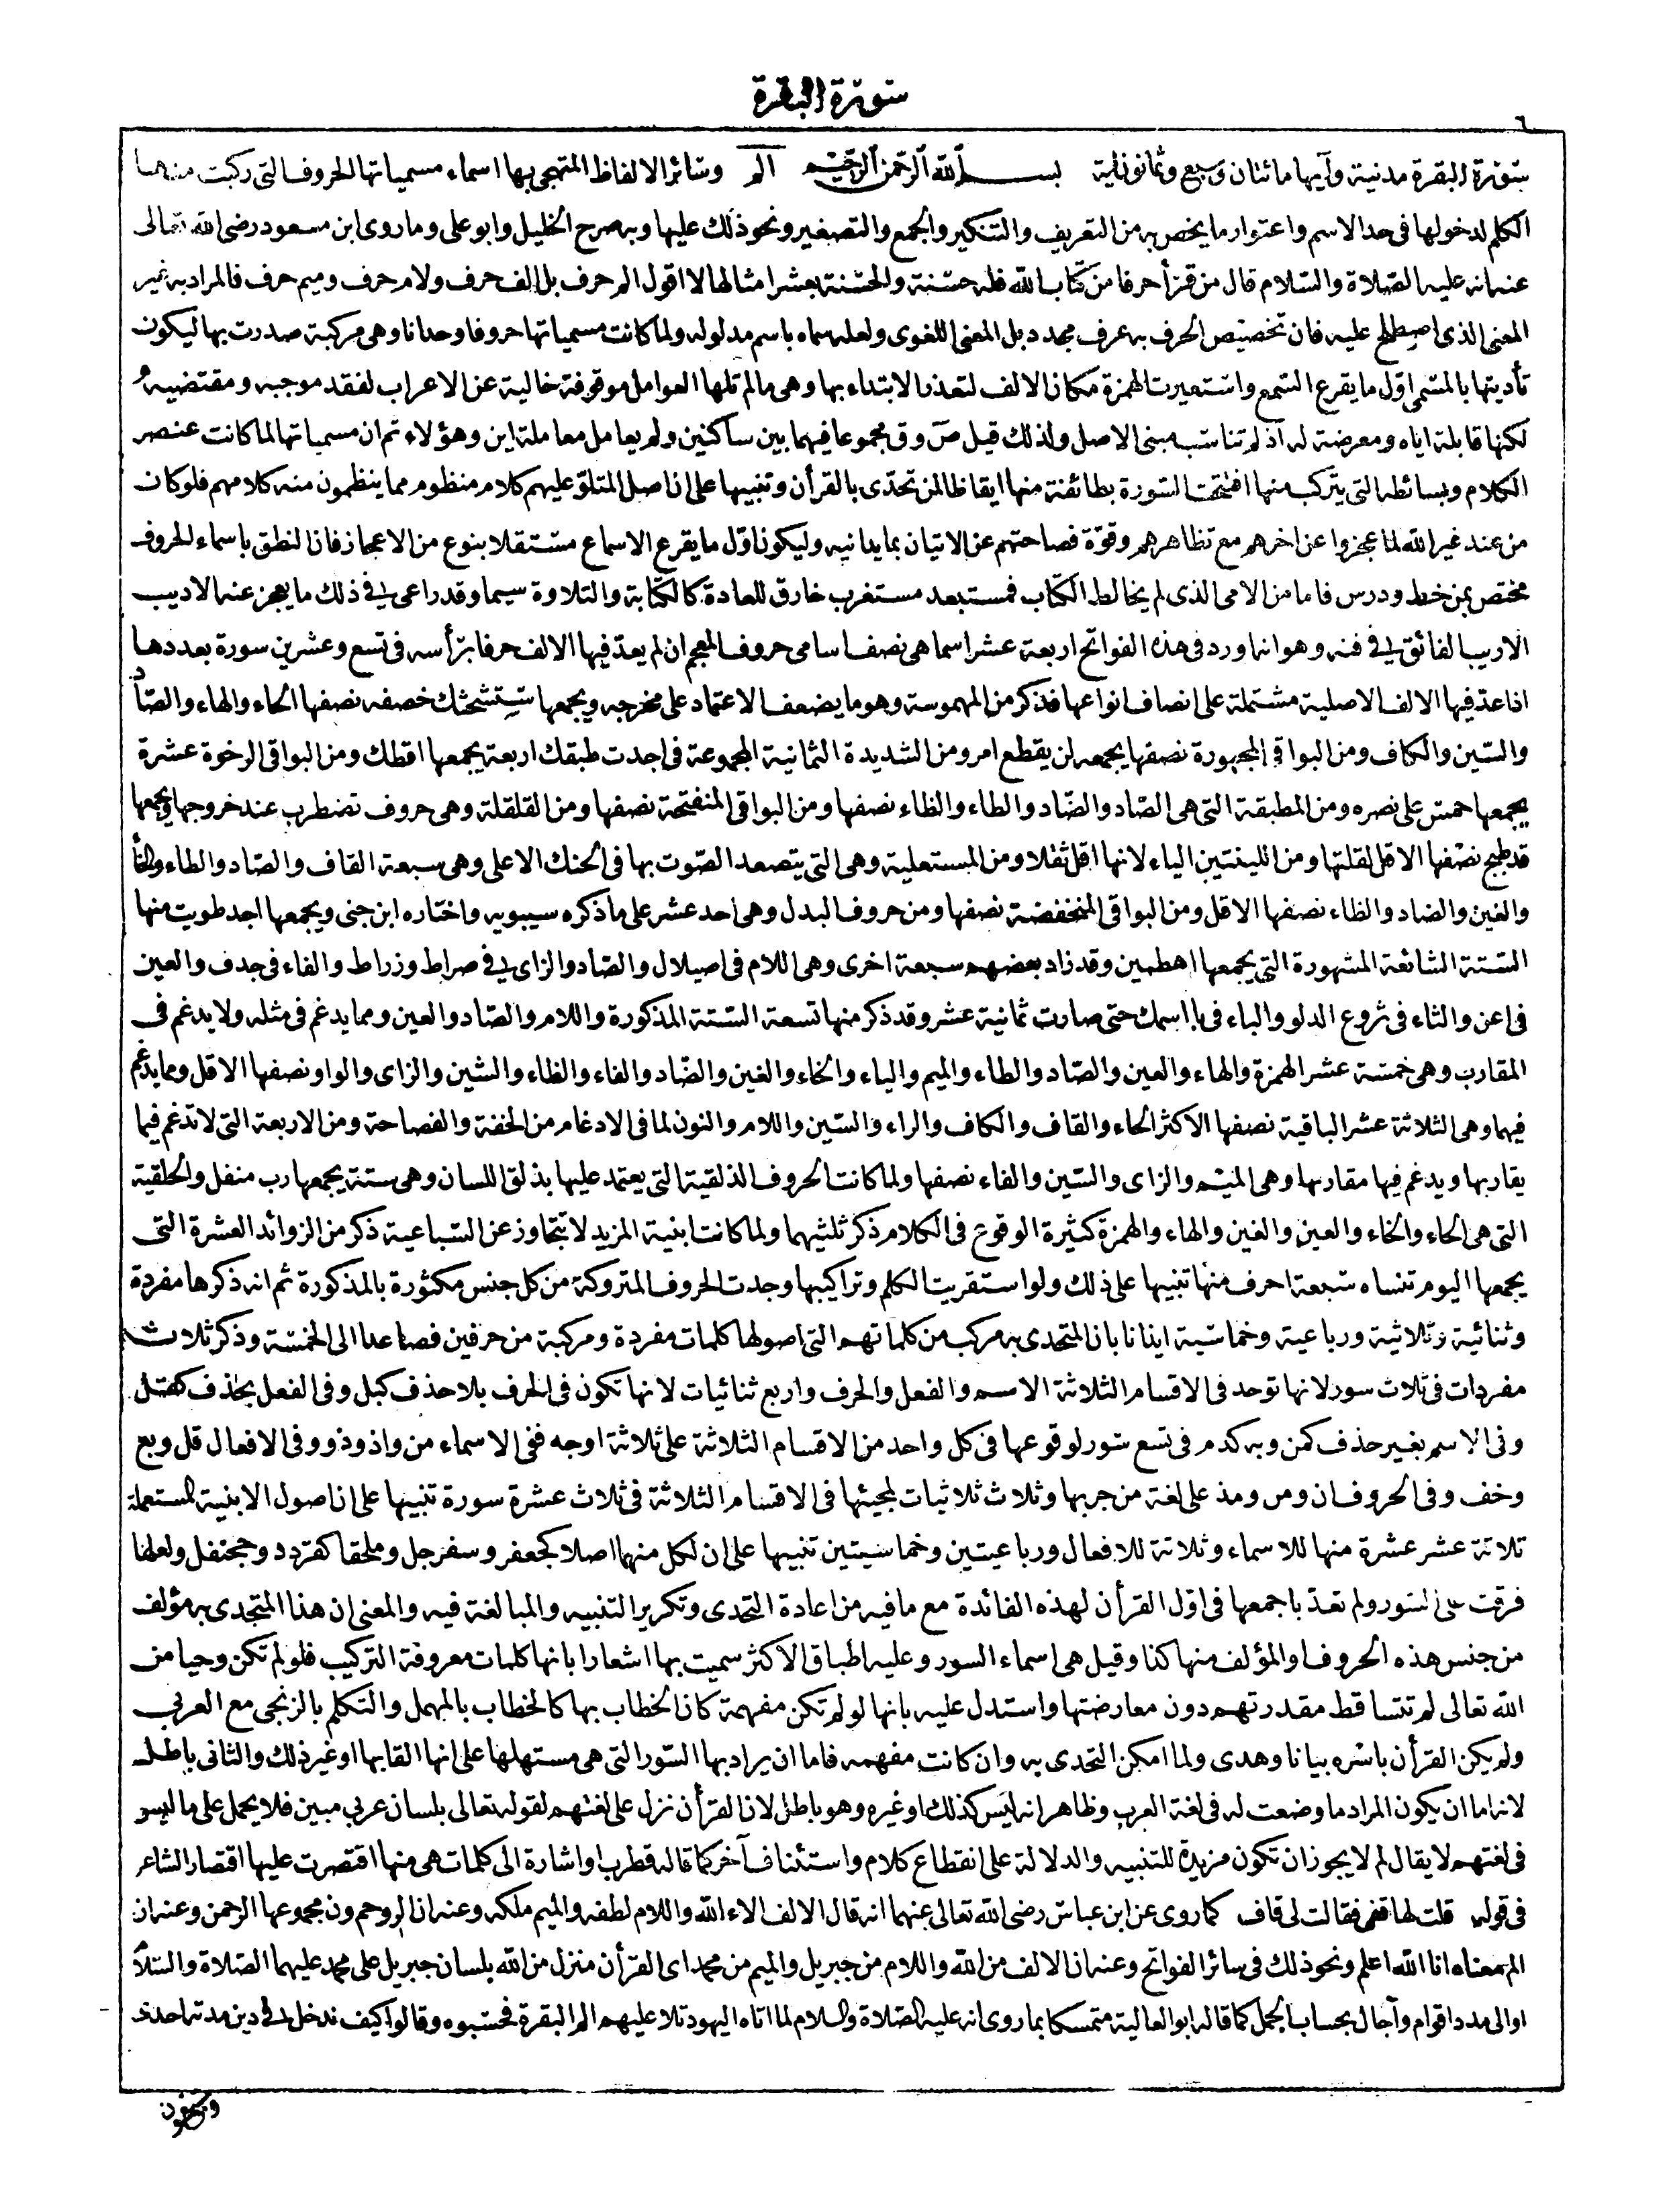 سورة البقرة
٦
سورة البقرة مدنية وآيها مائتان وسبع وثمانون اية بسم الله الرحمن الرحيم الم وسائر الالفاظ المتهجى بها اسماء مسمياتها الحروف التى ركبت منها
الكلم لدخولها فى حد الاسم واعتوار ما يخص به من التعريف والتنكير والجمع والتصغير ونحو ذلك عليها وبه صرح الخليل وابو على وما روى ابن مسعود رضى الله تعالى
عنه انه عليه الصلاة والسلام قال من قرأ حرفا من كتاب الله فله حسنة والحسنة بعشر امثالها لا اقول الم حرف بل الف حرف ولام حرف وميم حرف فالمراد به غير
المعنى الذى اصطلح عليه فان تخصيص الحرف به عرف مجدد بل المعنى اللغوى ولعله سماه باسم مدلوله ولما كانت مسمياتها حروفا وحدانا وهى مركبة صدرت بها ليكون
تأديتها بالمسمى اول ما يقرع السمع واستعيرت الهمزة مكان الالف لتعذر الابتداء بها وهى ما لم تلها العوامل موقوفة خالية عن الاعراب لفقد موجبه ومقتضيه و
لكنها قابلة اياه ومعرضة له اذ لم تناسب مبنى الاصل ولذلك قيل ص وق مجموعا فيهما بين ساكنين ولم يعامل معاملة اين وهؤلاء ثم ان مسمياتها لما كانت عنصر
الكلام وبسائطه التى يتركب منها افتتحت السورة بطائفة منها ايقاظا لمن تحدى بالقرأن وتنبيها على ان اصل المتلو عليهم كلام منظوم مما ينظمون منه كلامهم فلو كان
من عند غير الله لما عجزوا عن اخرهم مع تظاهرهم وقوة فصاحتهم عن الاتيان بما يدانيه وليكون اول ما يقرع الاسماع مستقلا بنوع من الاعجاز فان النطق باسماء الحروف
مختص بمن خط ودرس فاما من الامى الذى لم يخالط الكتاب فمستبعد مستغرب خارق للعادة كالكتابة والتلاوة سيما وقد راعى فى ذلك ما يعجز عنه الاديب
الاريب الفائق فى فنه وهو انه اورد فى هذه الفواتح اربعة عشر اسما هى نصف اسامى حروف المعجم ان لم يعد فيها الالف حرفا برأسه فى تسع وعشرين سورة بعددها
اذا عد فيها الالف الاصلية مشتملة على انصاف انواعها فذكر من المهموسة وهو ما يضعف الاعتماد على مخرجه ويجمعها ستشحثك خصفه نصفها الحاء والهاء والصاد
والسين والكاف ومن البواقى المجهورة نصفها يجمعه لن يقطع امر ومن الشديدة الثمانية المجموعة فى اجدت طبقك اربعة يجمعها اقطك ومن البواقى الرخوة عشرة
يجمعها حمس على نصره ومن المطبقة التى هى الصاد والضاد والطاء والظاء نصفها ومن البواقى المنفتحة نصفها ومن القلقلة وهى حروف تضطرب عند خروجها ويجمعها
قد طبج نصفها الاقل لقلتها ومن اللينتين الياء لانها اقل ثقلا ومن المستعلية وهى التى يتصعد الصوت بها فى الحنك الاعلى وهى سبعة القاف والصاد والطاء والخاء
والغين والضاد والظاء نصفها الاقل ومن البواقى المنخفضة نصفها ومن حروف البدل وهى احد عشر على ما ذكره سيبويه واختاره ابن جنى ويجمعها اجد طويت منها
الستة الشائعة المشهورة التى يجمعها اهطمين وقد زاد بعضهم سبعة اخرى وهى اللام فى اصيلال والصاد والزاى فى صراط وزراط والفاء فى جدف والعين
فى اعن والثاء فى ثروغ الدلو والباء فى با اسمك حتى صارت ثمانية عشر وقد ذكر منها تسعة الستة المذكورة واللام والصاد والعين ومما يدغم فى مثله ولا يدغم فى
المقارب وهى خمسة عشر الهمزة والهاء والعين والصاد والطاء والميم والياء والخاء والغين والضاد والفاء والظاء والشين والزاى والواو نصفها الاقل ومما يدغم
فيهما وهى الثلاثة عشر الباقية نصفها الاكثر الحاء والقاف والكاف والراء والسين واللام والنون لما فى الادغام من الخفة والفصاحة ومن الاربعة التى لا تدغم فيما
يقاربها ويدغم فيها مقاربها وهى الميم والزاى والسين والفاء نصفها ولما كانت الحروف الذلقية التى يعتمد عليها بذلق اللسان وهى ستة يجمعها رب منفل والحلقية
التى هى الحاء والخاء والعين والغين والهاء والهمزة كثيرة الوقوع فى الكلام ذكر ثلثيهما ولما كانت ابنية المزيد لا تتجاوز عن السباعية ذكر من الزوائد العشرة التى
يجمعها اليوم تنساه سبعة احرف منها تنبيها على ذلك ولو استقريت الكلم وتراكيبها وجدت الحروف المتروكة من كل جنس مكثورة بالمذكورة ثم انه ذكرها مفردة
وثنائية وثلاثية ورباعية وخماسية ايذانا بان المتحدى به مركب من كلماتهم التى اصولها كلمات مفردة ومركبة من حرفين فصاعدا الى الخمسة وذكر ثلاث
مفردات فى ثلاث سور لانها توجد فى الاقسام الثلاثة الاسم والفعل والحرف واربع ثنائيات لانها تكون فى الحرف بلا حذف كبل وفى الفعل بحذف كقل
وفى الاسم بغير حذف كمن وبه كدم فى تسع سور لوقوعها فى كل واحد من الاقسام الثلاثة على ثلاثة اوجه ففى الاسماء من واذ وذو وفى الافعال قل وبع
وخف وفى الحروف ان ومن ومذ على لغة من جر بها وثلاث ثلاثيات لمجيئها فى الاقسام الثلاثة فى ثلاث عشرة سورة تنبيها على ان اصول الابنية المستعملة
ثلاثة عشر عشرة منها للاسماء وثلاثة للافعال ورباعيتين وخماسيتين تنبيها على ان لكل منهما اصلا كجعفر وسفرجل وملحقا كقردد وجحنفل ولعلها
فرقت على السور ولم تعد باجمعها فى اول القرأن لهذه الفائدة مع ما فيه من اعادة التحدى وتكرير التنبيه والمبالغة فيه والمعنى ان هذا المتحدى به مؤلف
من جنس هذه الحروف او المؤلف منها كذا وقيل هى اسماء السور وعليه اطباق الاكثر سميت بها اشعارا بانها كلمات معروفة التركيب فلو لم تكن وحيا من
الله تعالى لم تتساقط مقدرتهم دون معارضتها واستدل عليه بانها لو لم تكن مفهمة كان الخطاب بها كالخطاب بالمهمل والتكلم بالزنجى مع العربى
ولم يكن القرأن باسره بيانا وهدى ولما امكن التحدى به وان كانت مفهمة فاما ان يراد بها السور التى هى مستهلها على انها القابها او غير ذلك والثانى باطل
لانه اما ان يكون المراد ما وضعت له فى لغة العرب وظاهر انه ليس كذلك او غيره وهو باطل لان القرأن نزل على لغتهم لقوله تعالى بلسان عربى مبين فلا يحمل على ما ليس
فى لغتهم لا يقال لم لا يجوز ان تكون مزيدة للتنبيه والدلالة على انقطاع كلام واستئناف آخر كما قاله قطرب او اشارة الى كلمات هى منها اقتصرت عليها اقتصار الشاعر
فى قوله قلت لها قفى فقالت لى قاف كما روى عن ابن عباس رضى الله تعالى عنهما انه قال الالف الاء الله واللام لطفه والميم ملكه وعنه ان الر وحم ون مجموعها الرحمن وعنه ان
الم معناه انا الله اعلم ونحو ذلك فى سائر الفواتح وعنه ان الالف من الله واللام من جبريل والميم من محمد اى القرأن منزل من الله بلسان جبريل على محمد عليهما الصلاة والسلام
او الى مدد اقوام وآجال بحساب الجمل كما قاله ابو العالية متمسكا بما روى انه عليه الصلاة والسلام لما اتاه اليهود تلا عليهم الم البقرة فحسبوه وقالوا كيف ندخل فى دين مدته احدى
وسبعون